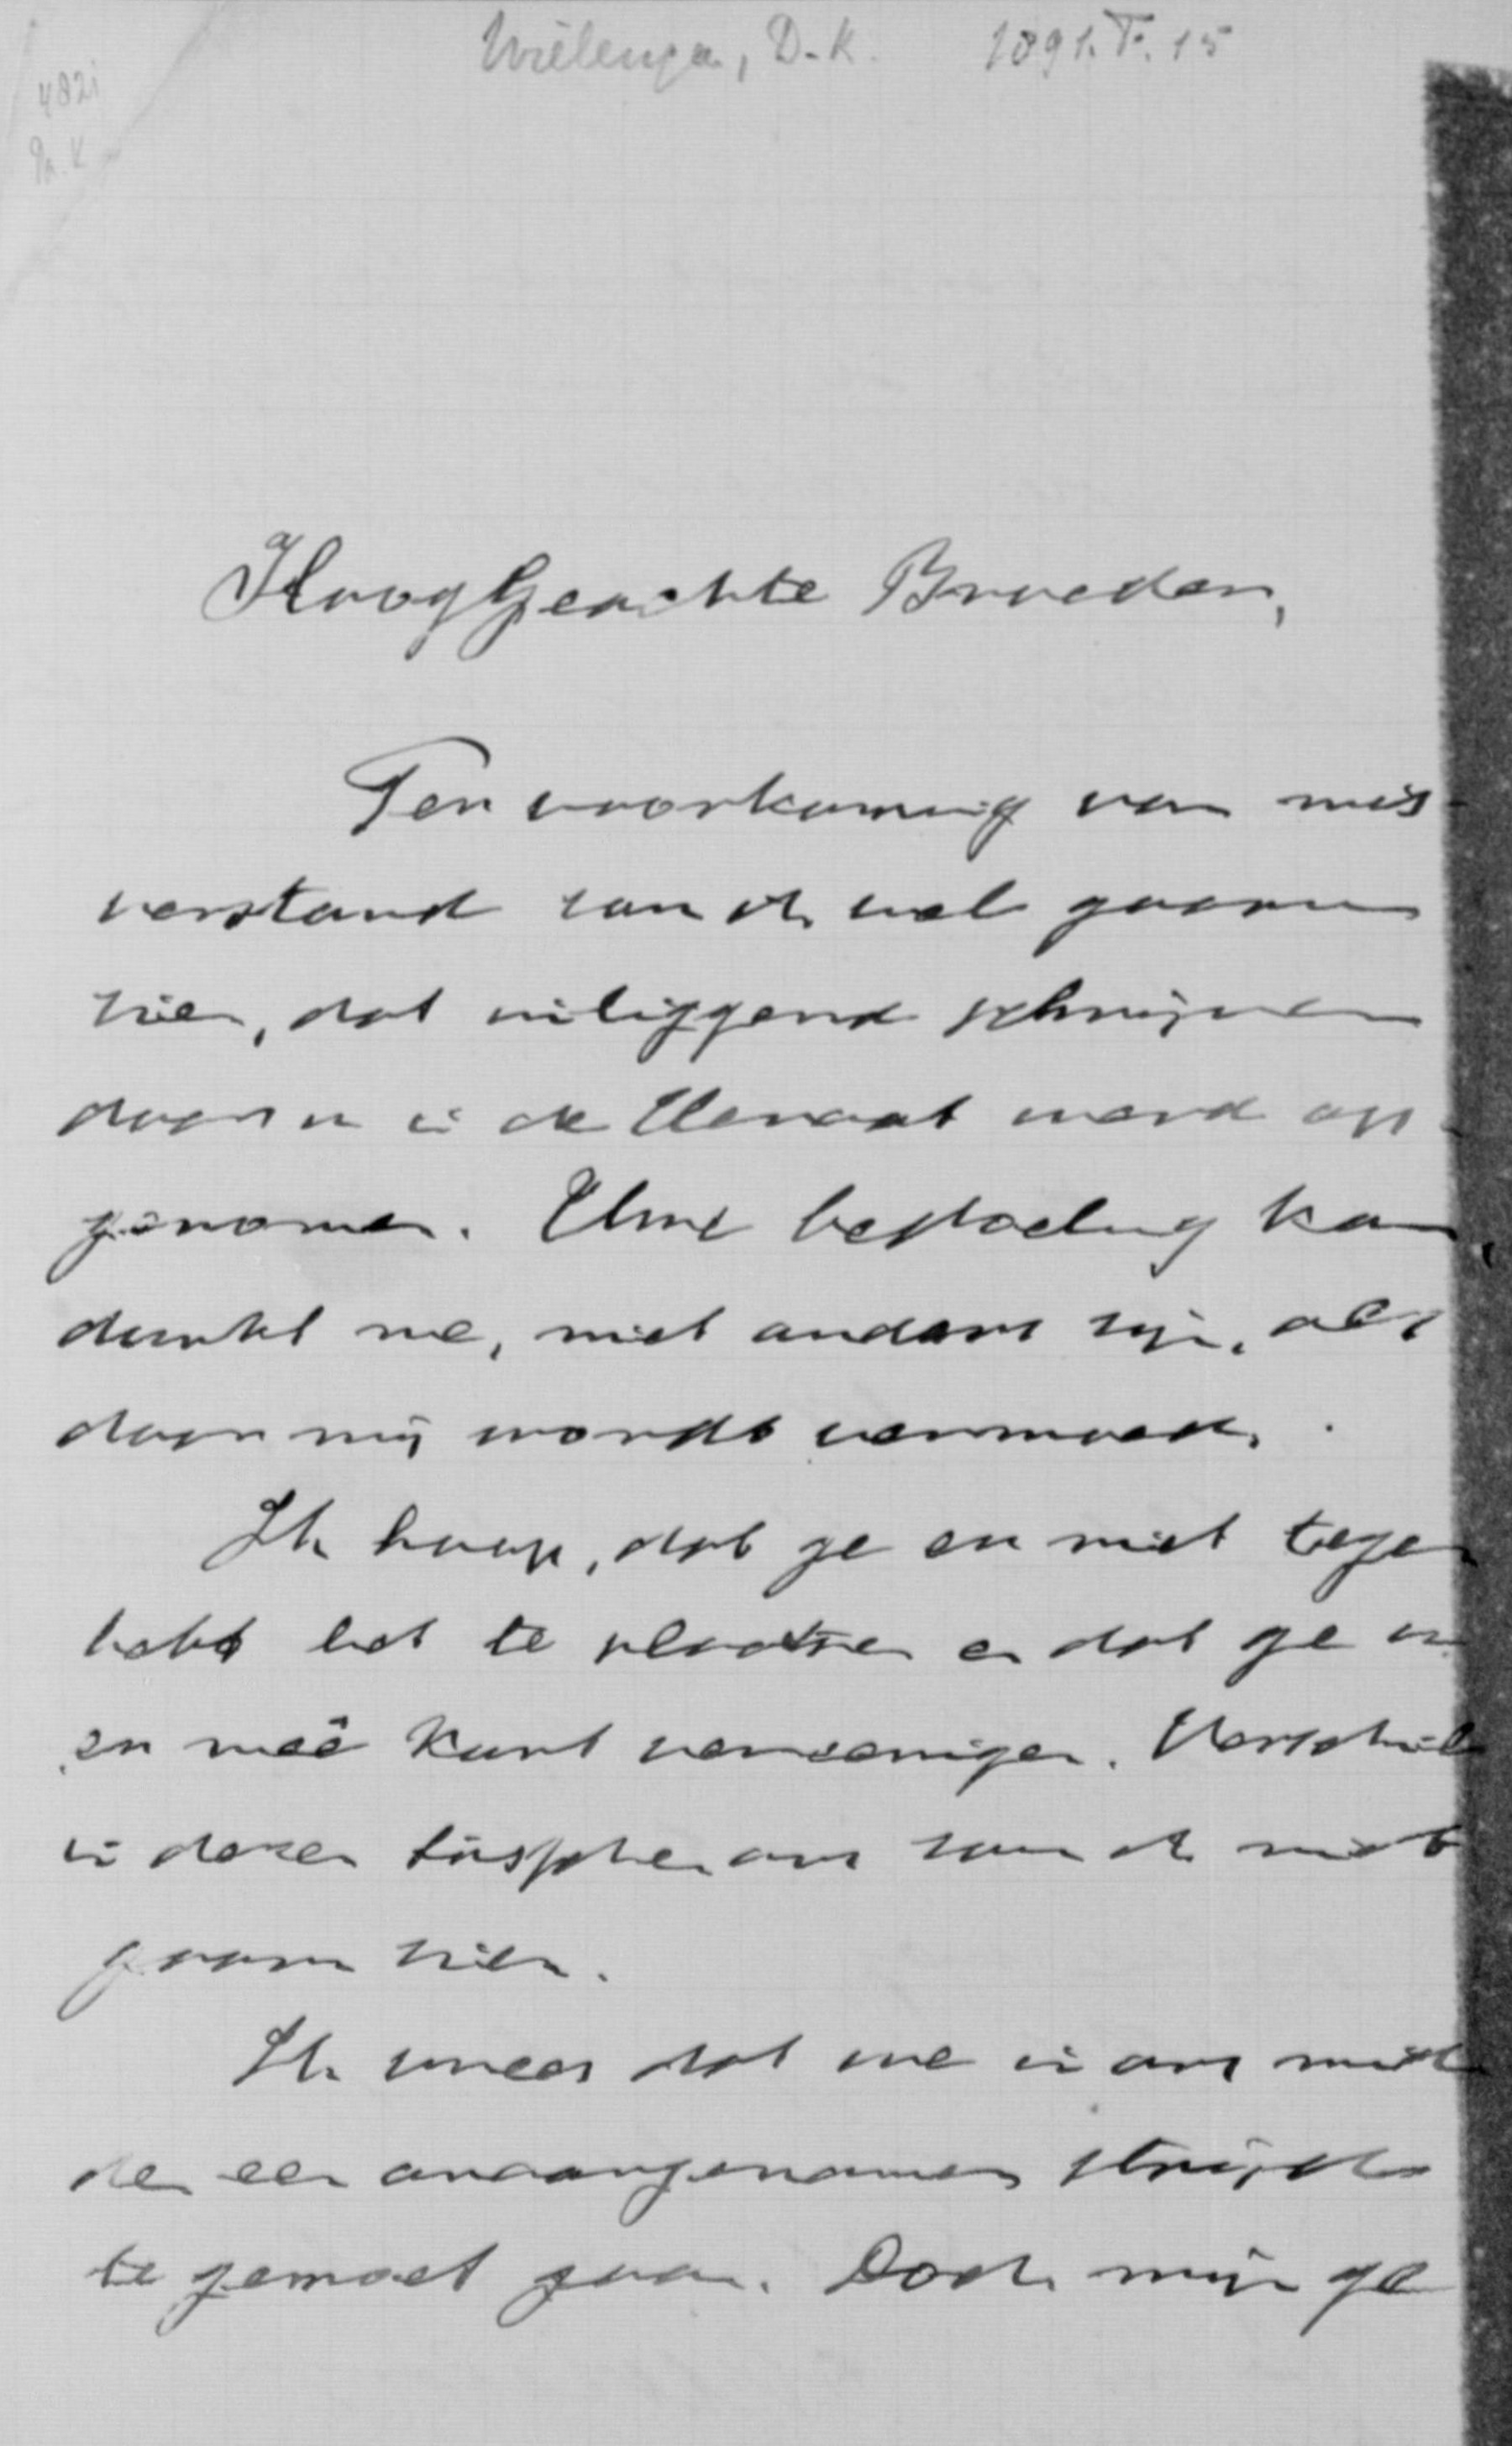 Wielenga, D.K. 1891.V.15
4821
HoogGeachte Broeder,
Ter voorkoming van mis-
verstand zou ik wel gaarne
zien, dat inliggend schrijven
door u in de Heraut werd op-
genomen. Uwe bedoeling kan,
dunkt me, niet anders zijn, als
door mij wordt vermoed.
Ik hoop, dat ge er niet tegen
hebt het te plaatsen en dat ge u
er meê kunt vereenigen. Verschil
in dezen tusschen ons zou ik niet
gaarne zien.
Ik vrees dat we in ons mid-
den een onaangenamen strijd
te gemoet gaan. Doch mijn ge